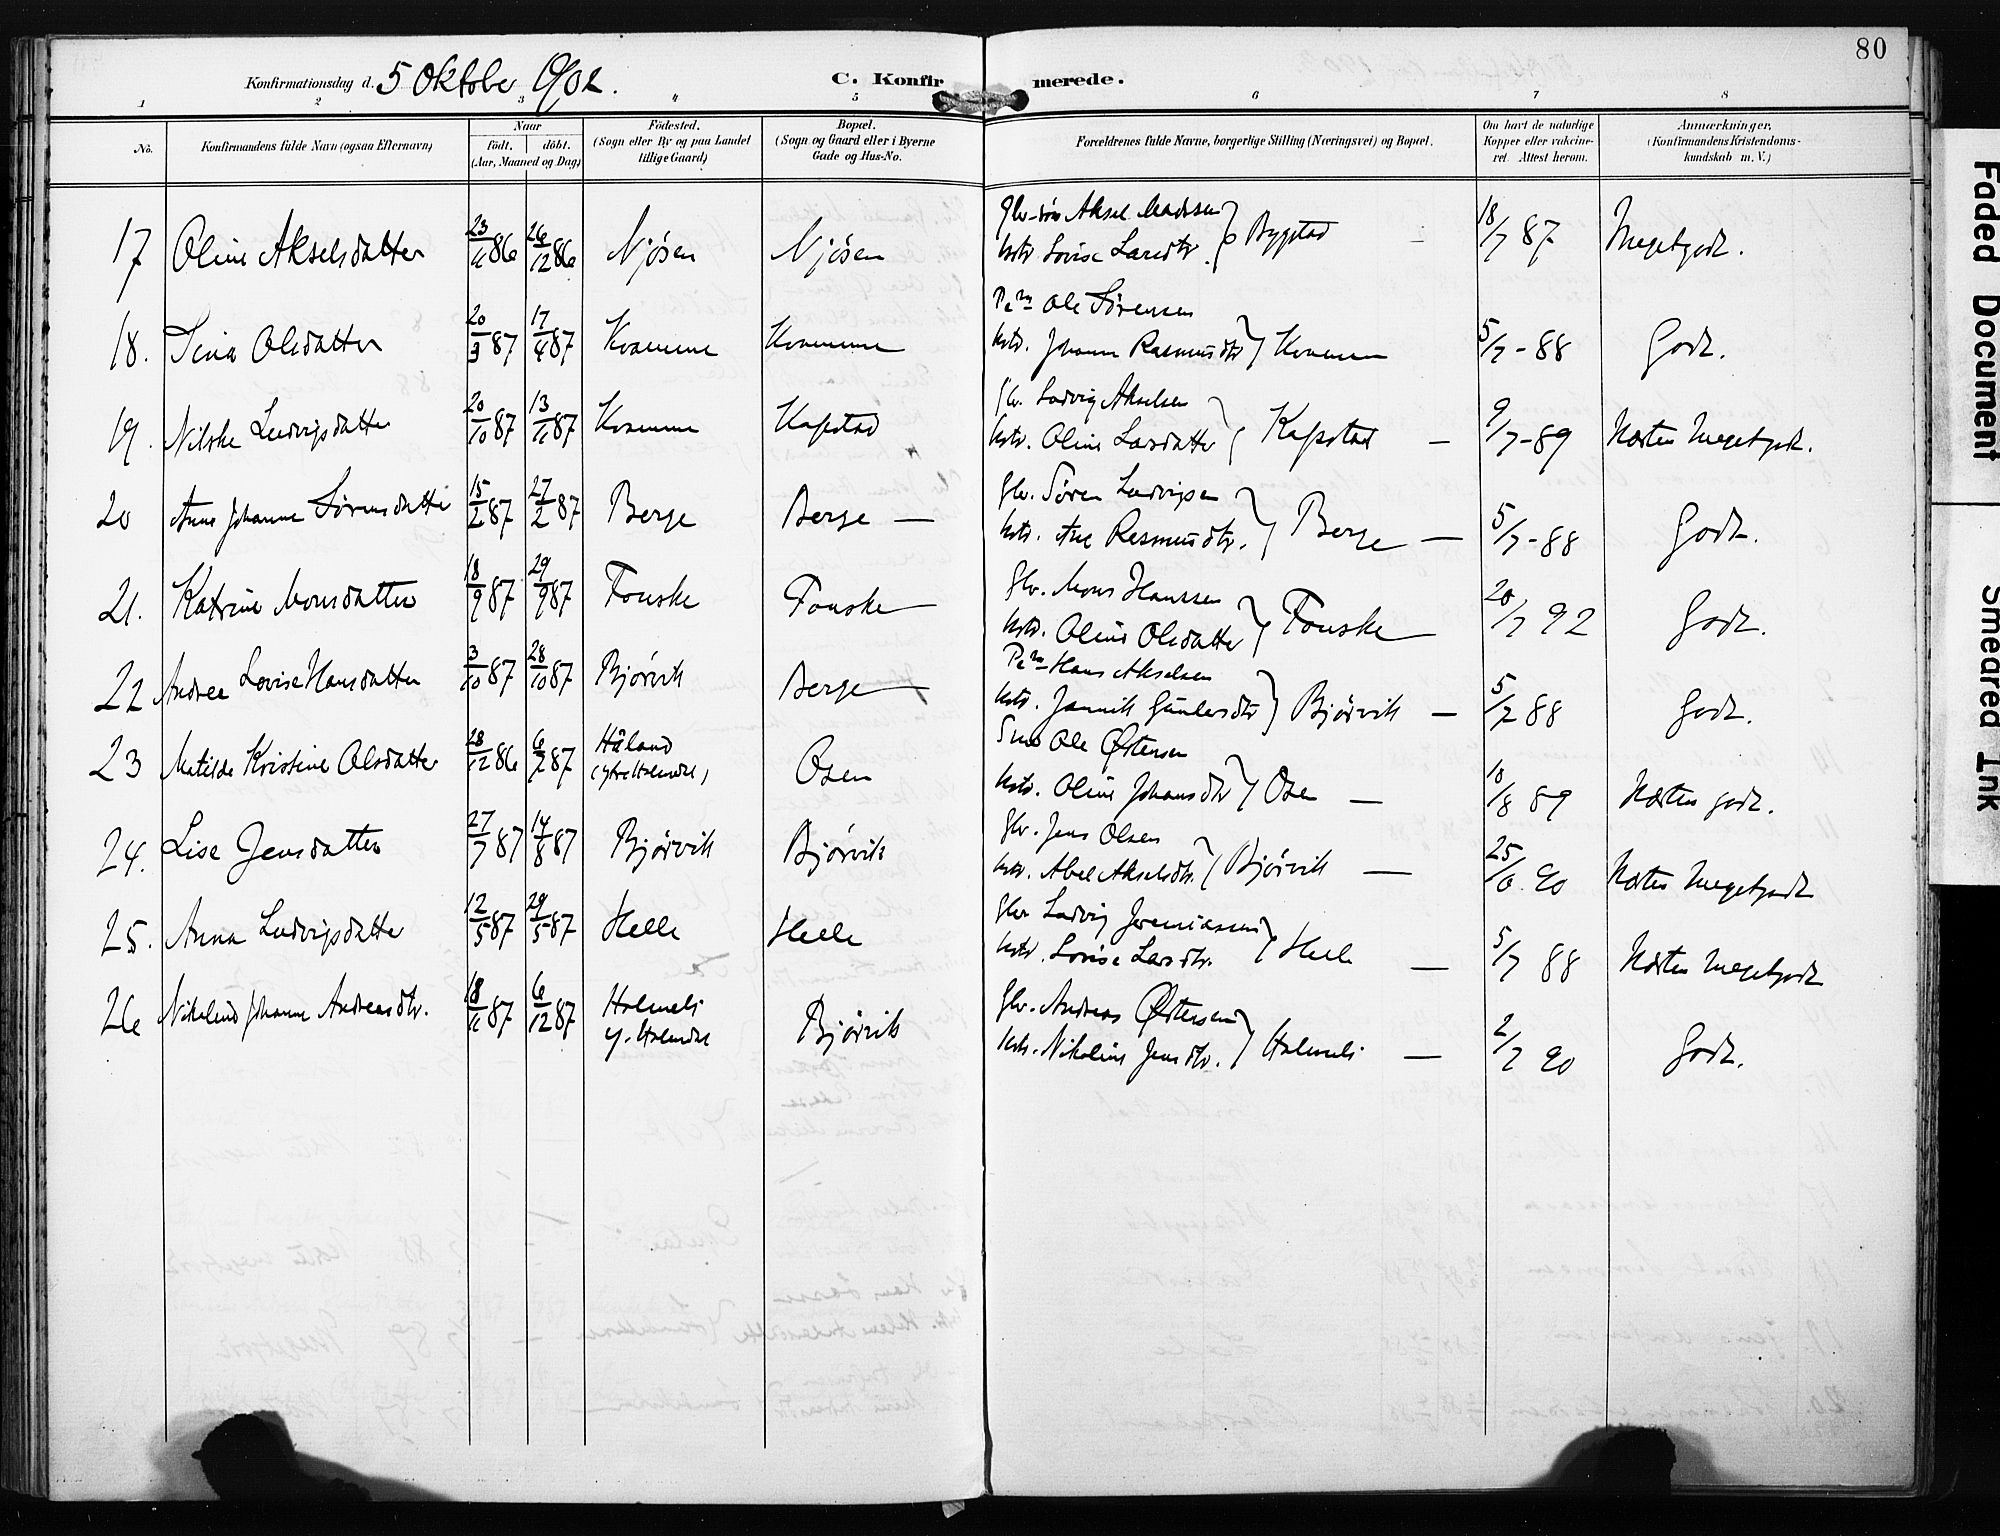 80
Konfirmationsdag d. 5 Oktober 1902. C. Konfirmerede.
1 2 3 4 5 6 7 8
No. Konfirmandens fulde Navn (ogsaa Efternavn) Naar födt. döbt. (Aar, Maaned og Dag) Födested. (Sogn eller By og paa Landet tillige Gaard) Bopæl. (Sogn og Gaard eller i Byerne Gade og Hus-No. Forældrenes fulde Navne, borgerlige Stilling (Næringsvei) og Bopæl. Om havt de naturlige Kopper eller vakcineret. Attest herom. Anmærkninger. (Konfirmandens Kristendomskundskab m. V.)
17 Oline Akselsdatter 23/11 86 26/12 86 Njøsen Njøsen Aksel Madsen Hstr. Lovise Larsdtr. Bygstad 18/7 87 Megetgodt.
18. Sina Olsdatter 20/3 87 17/4 87 Kvamme Kvamme Ole Sørensen Hstr. Johanne Rasmusdtr Kvamme 5/7-88 Godt.
19. Nilske Ludvigsdatter 20/10 87 13/11 87 Kvamme Kapstad Gbr. Ludvig Akselsen Hstr. Oline Larsdatter Kapstad — 9/7-89 Næsten Megetgodt.
20 Anne Johanne Sørensdatter 15/2 87 27/2 87 Berge Berge — Gbr. Søren Ludvigsen Hstr. Ane Rasmusdtr. Berge — 5/7-88 Godt.
21. Katrine Monsdatter 18/9 87 29/9 87 Fouske Fouske Gbr. Mons Hanssen Hstr. Oline Olsdatter Fouske 20/7 92 Godt.
22 Andrea Lovise Hansdatter 3/10 87 28/10 87 Bjørvik Berge Hans Akselsen Hstr. Jannik Gunlersdtr Bjørvik — 5/7 88 Godt.
23 Matilde Kristine Olsdatter 28/12 86 6/2 87 Håland (ytre Holmedal) Osen Ole Østensen Hstr. Oline Johansdtr Osen — 10/8 89 Næsten godt.
24. Lise Jensdatter 27/7 87 14/8 87 Bjørvik Bjørvik Gbr. Jens Olsen Hstr. Abel Akselsdtr. Bjørvik — 25/6 90 Næsten Megetgodt
25. Anna Ludvigsdatter 12/5 87 29/5 87 Helle Helle Gbr Ludvig Jeremiassen Hstr. Lovise Larsdtr. Helle — 5/7 88 Næsten Megetgodt
26 Nikoline Johanne Andreasdtr. 18/11 87 6/12 87 Holmeli y. Holmedal Bjørvik Gbr. Andreas Østensen Hstr. Nikoline Jensdtr. Holmeli — 2/7 90 Godt.
Faded Document
Smeared Ink